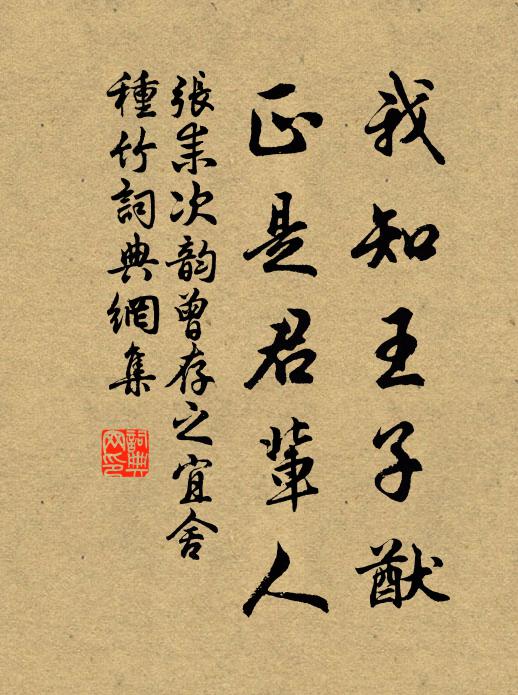 我知王子猷
正是君輩人
張耒次韵曾存之宜舍
種竹詞典網集
詞典網印